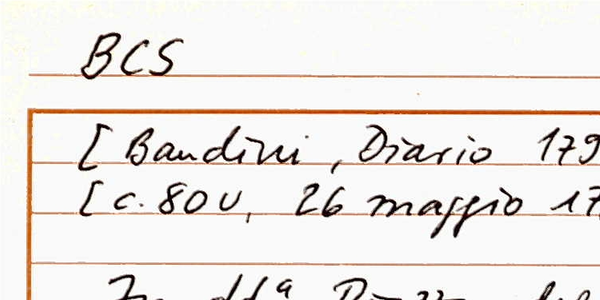 BCS
[ Bandini, Diario 179
[ c. 80v, 26 maggio 17